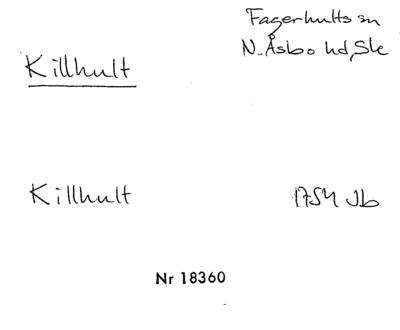 Fagerhults sn
N. Åsbo hd, Ske
Killhult
Killhult 1754 Jb
Nr 18360